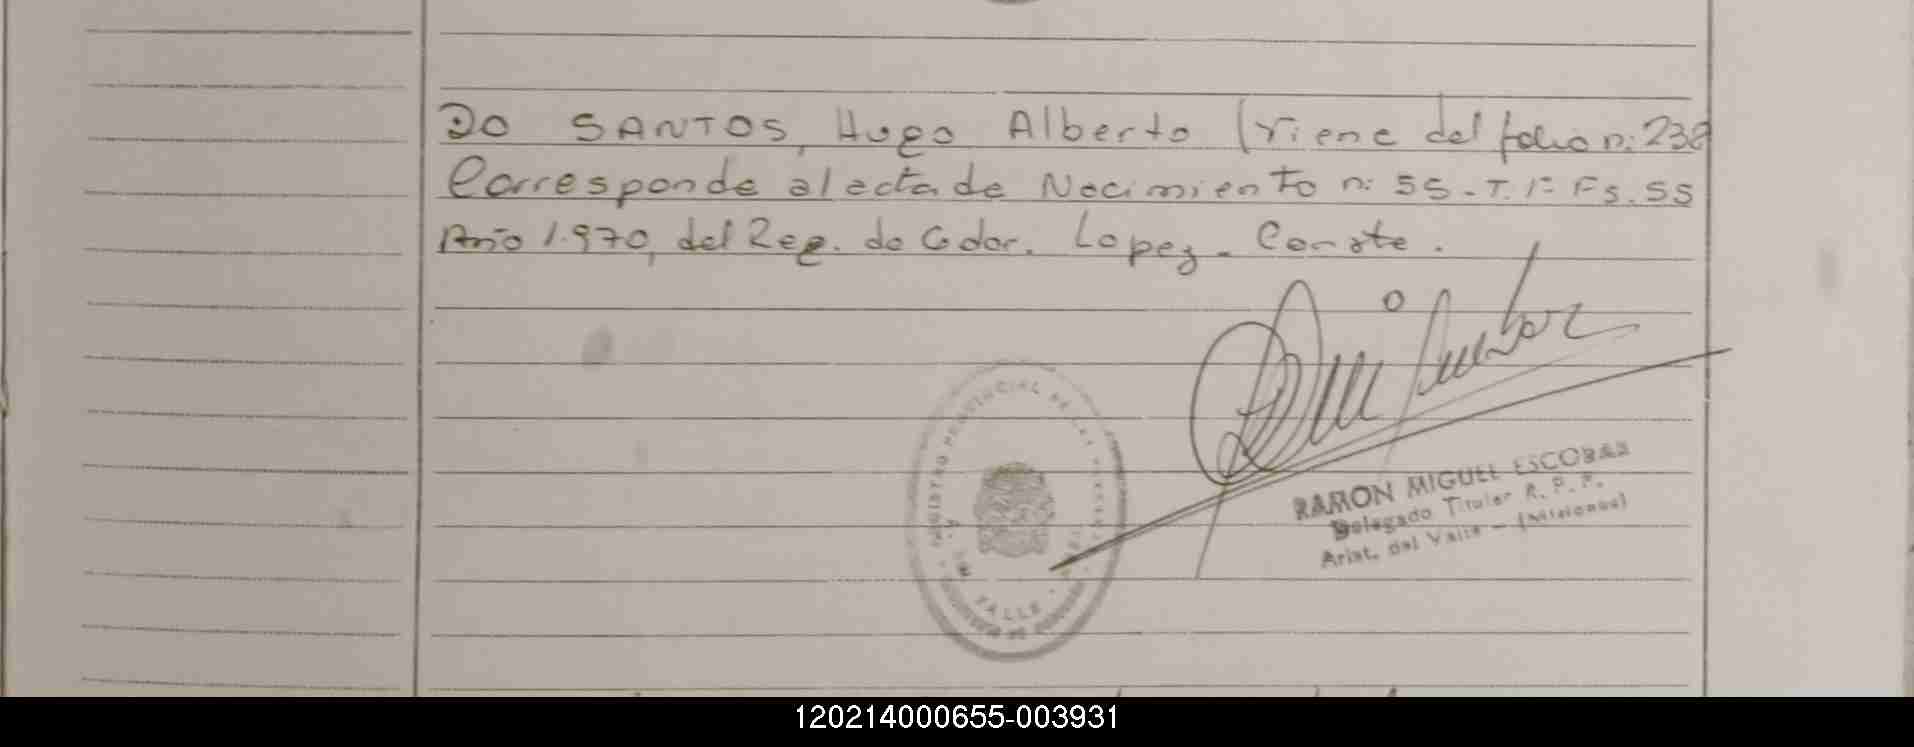 DO SANTOS, Hugo Alberto (viene del folio n: 238
Corresponde al acta de Nacimiento n: 55 - T. 1º Fs. 55
Año 1.970, del Reg. de Gdor. Lopez - Conste.
REGISTRO PROVINCIAL DE LAS PERSONAS
A. DEL VALLE
RAMON MIGUEL ESCOBAR
Delegado Titular R. P. P.
Arist. del Valle - (Misiones)
120214000655-003931